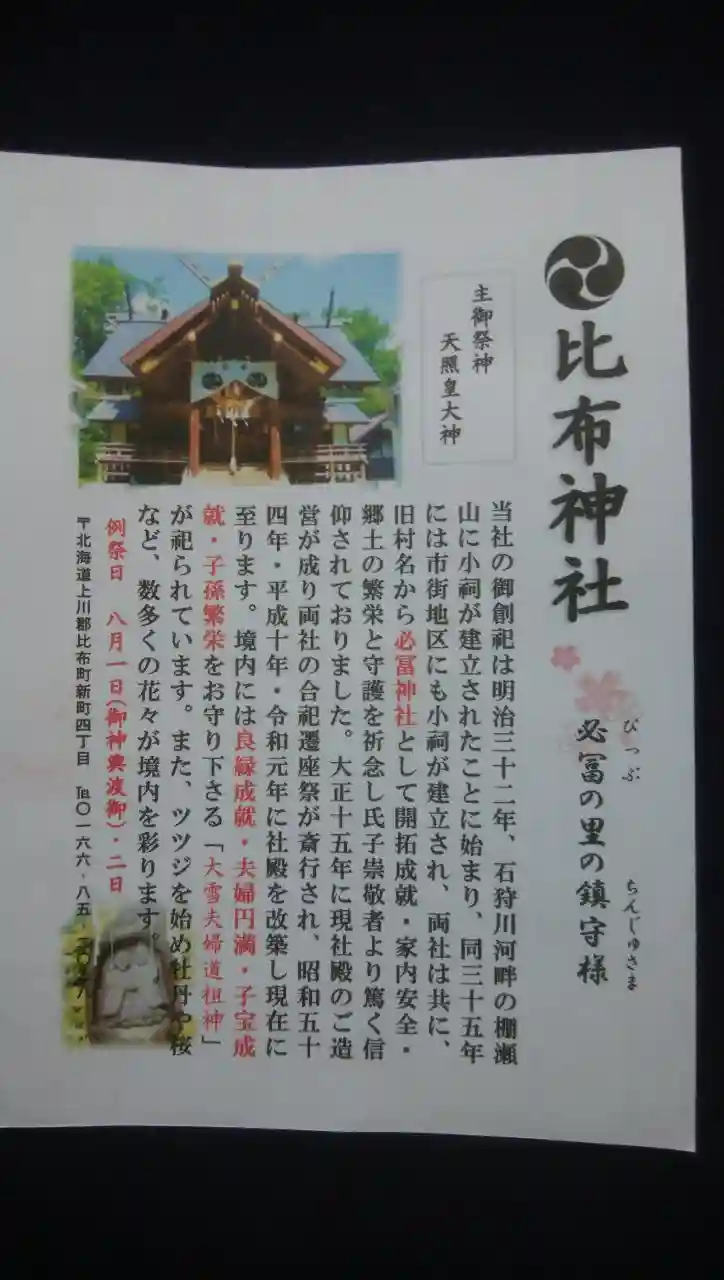 比布神社
必冨の里の鎮守様
ぴっぷ
ちんじゅさま
主御祭神
天照皇大神
当社の御創祀は明治三十二年、石狩川河畔の棚瀬
山に小祠が建立されたことに始まり、同三十五年
には市街地区にも小祠が建立され、両社は共に、
旧村名から必冨神社として開拓成就・家内安全・
郷土の繁栄と守護を祈念し氏子崇敬者より篤く信
仰されておりました。大正十五年に現社殿のご造
営が成り両社の合祀遷座祭が斎行され、昭和五十
四年・平成十年・令和元年に社殿を改築し現在に
至ります。境内には良縁成就・夫婦円満・子宝成
就・子孫繁栄をお守り下さる「大雪夫婦道祖神」
が祀られています。また、ツツジを始め牡丹や桜
など、数多くの花々が境内を彩ります。
例祭日 八月一日(御神輿渡御)・二日
〒北海道上川郡比布町新町四丁目 ℡〇一六六・八五・